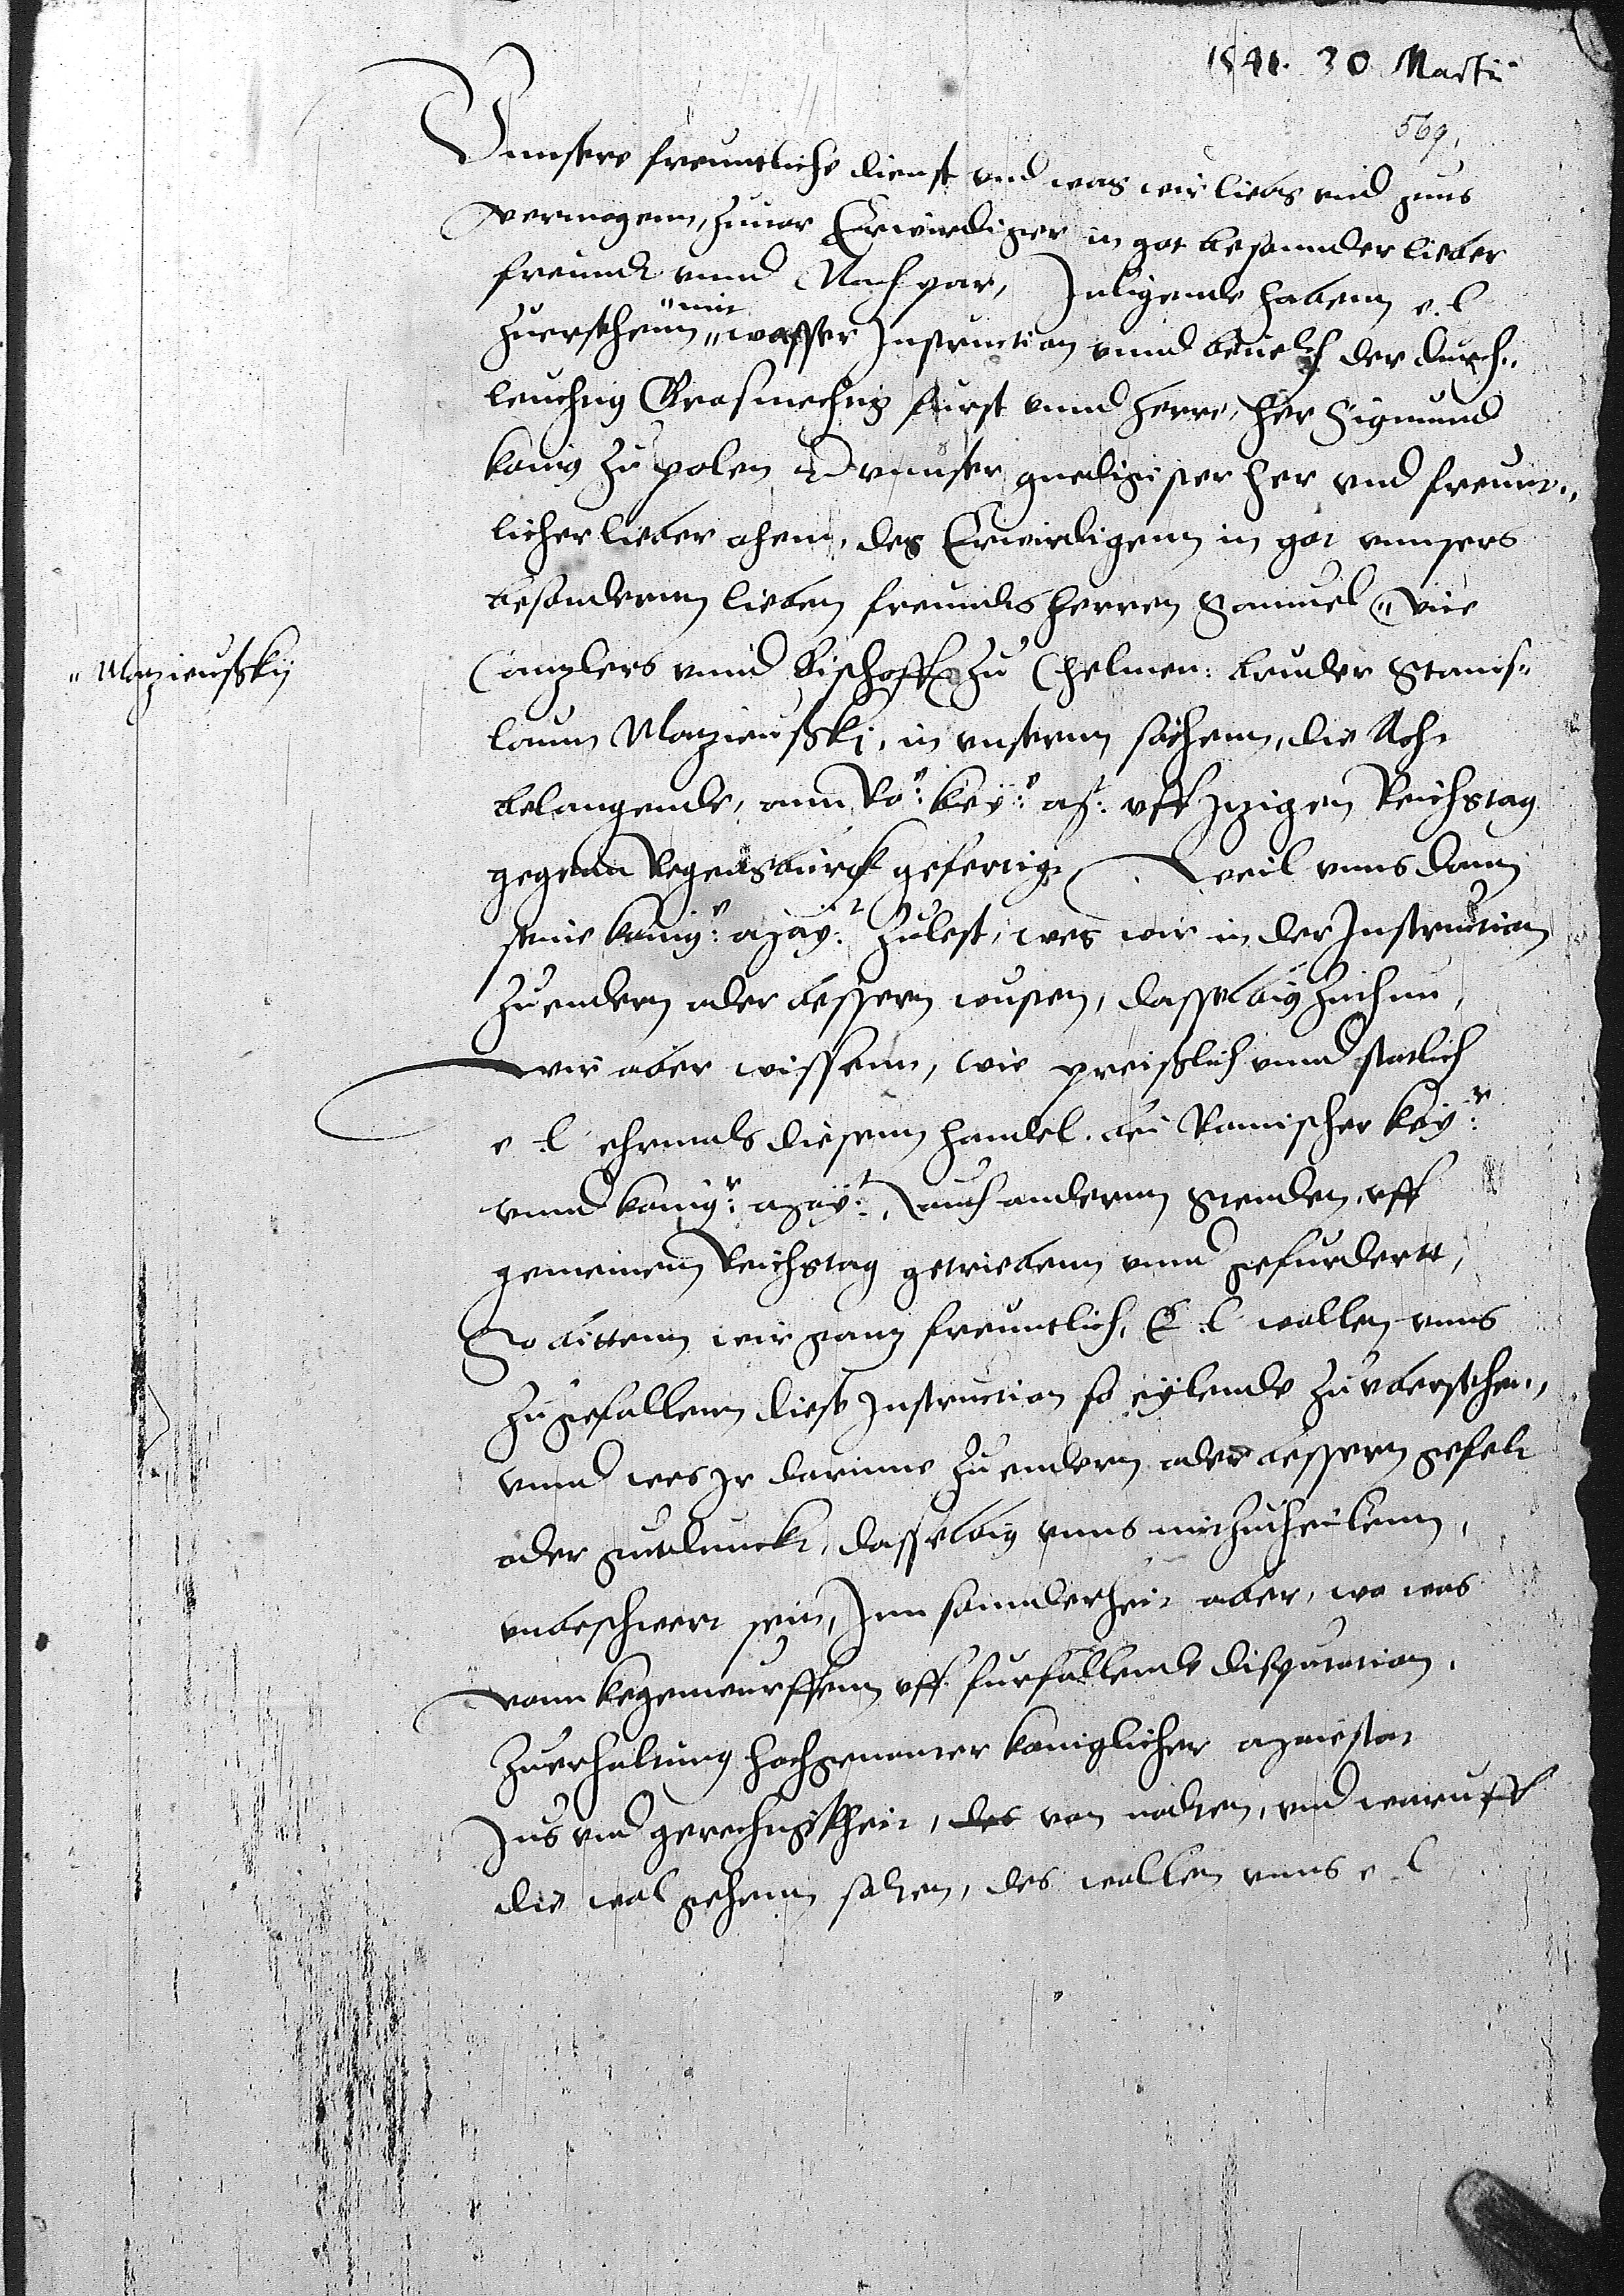 1541. 30 Martii
569,
Vnnsere freuntliche dienst vnd was wir liebs vnd guts
vermogenn, zuuor Erwirdiger in got besonnder lieber
freundt vnnd Nachpar, Inligende habenn e. l
zuersehenn "mit" wasser Instruction vnnd beuelh der durch„
leuchtig Grosmechtig furst vnnd herre, her Sigmund
konig zu polen vnnser gnedigister her vnd freunt„
licher lieber ohem, des Erwirdigenn in got vnnsers
besondernn lieben freundts herren Samuel „ vice
"Mazieufskij
Canzlers vnnd Bischoffs zu Chelmen: bruder Stanis„
laum Mazieufski, in vnsernn sachenn, die Acht
belangende, ann Ro: key: Mt: vff itzigen Reichstag
gegenn Regensburck gefertigt Weil vnns dann
seine konig: May: zulest, wes wir in der Instruction
zu endern oder bessern wusten, dasselbig zuthun,
wir aber wissenn, wie preißlich vnnd statlich
e. l ehrmals diesenn handel bei Romischer Key:
vnnd konig: May:, auch andernn Stenden, vff
gemeinem Reichstag getriebenn vnnd gefurdertt,
So bittenn wir ganz freuntlich, E. l wollen vnns
zu gefallenn diese Instruction so eylende zu vbersehen,
vnnd wes Ir darinne zu endern oder bessern gefelt
oder gutdunckt, dasselbig vnns mitzutheilenn,
vnbeschwert sein, Inn sonnderheit aber, wo was
vonn kegenwurffenn vff furfallende disputation,
zu erhaltung hochgenanter koniglicher Maiestat
Jus vnd gerechtigkheit, des von nothen, vnd worauff
die wol gehenn solten, des wollen vnns e. l